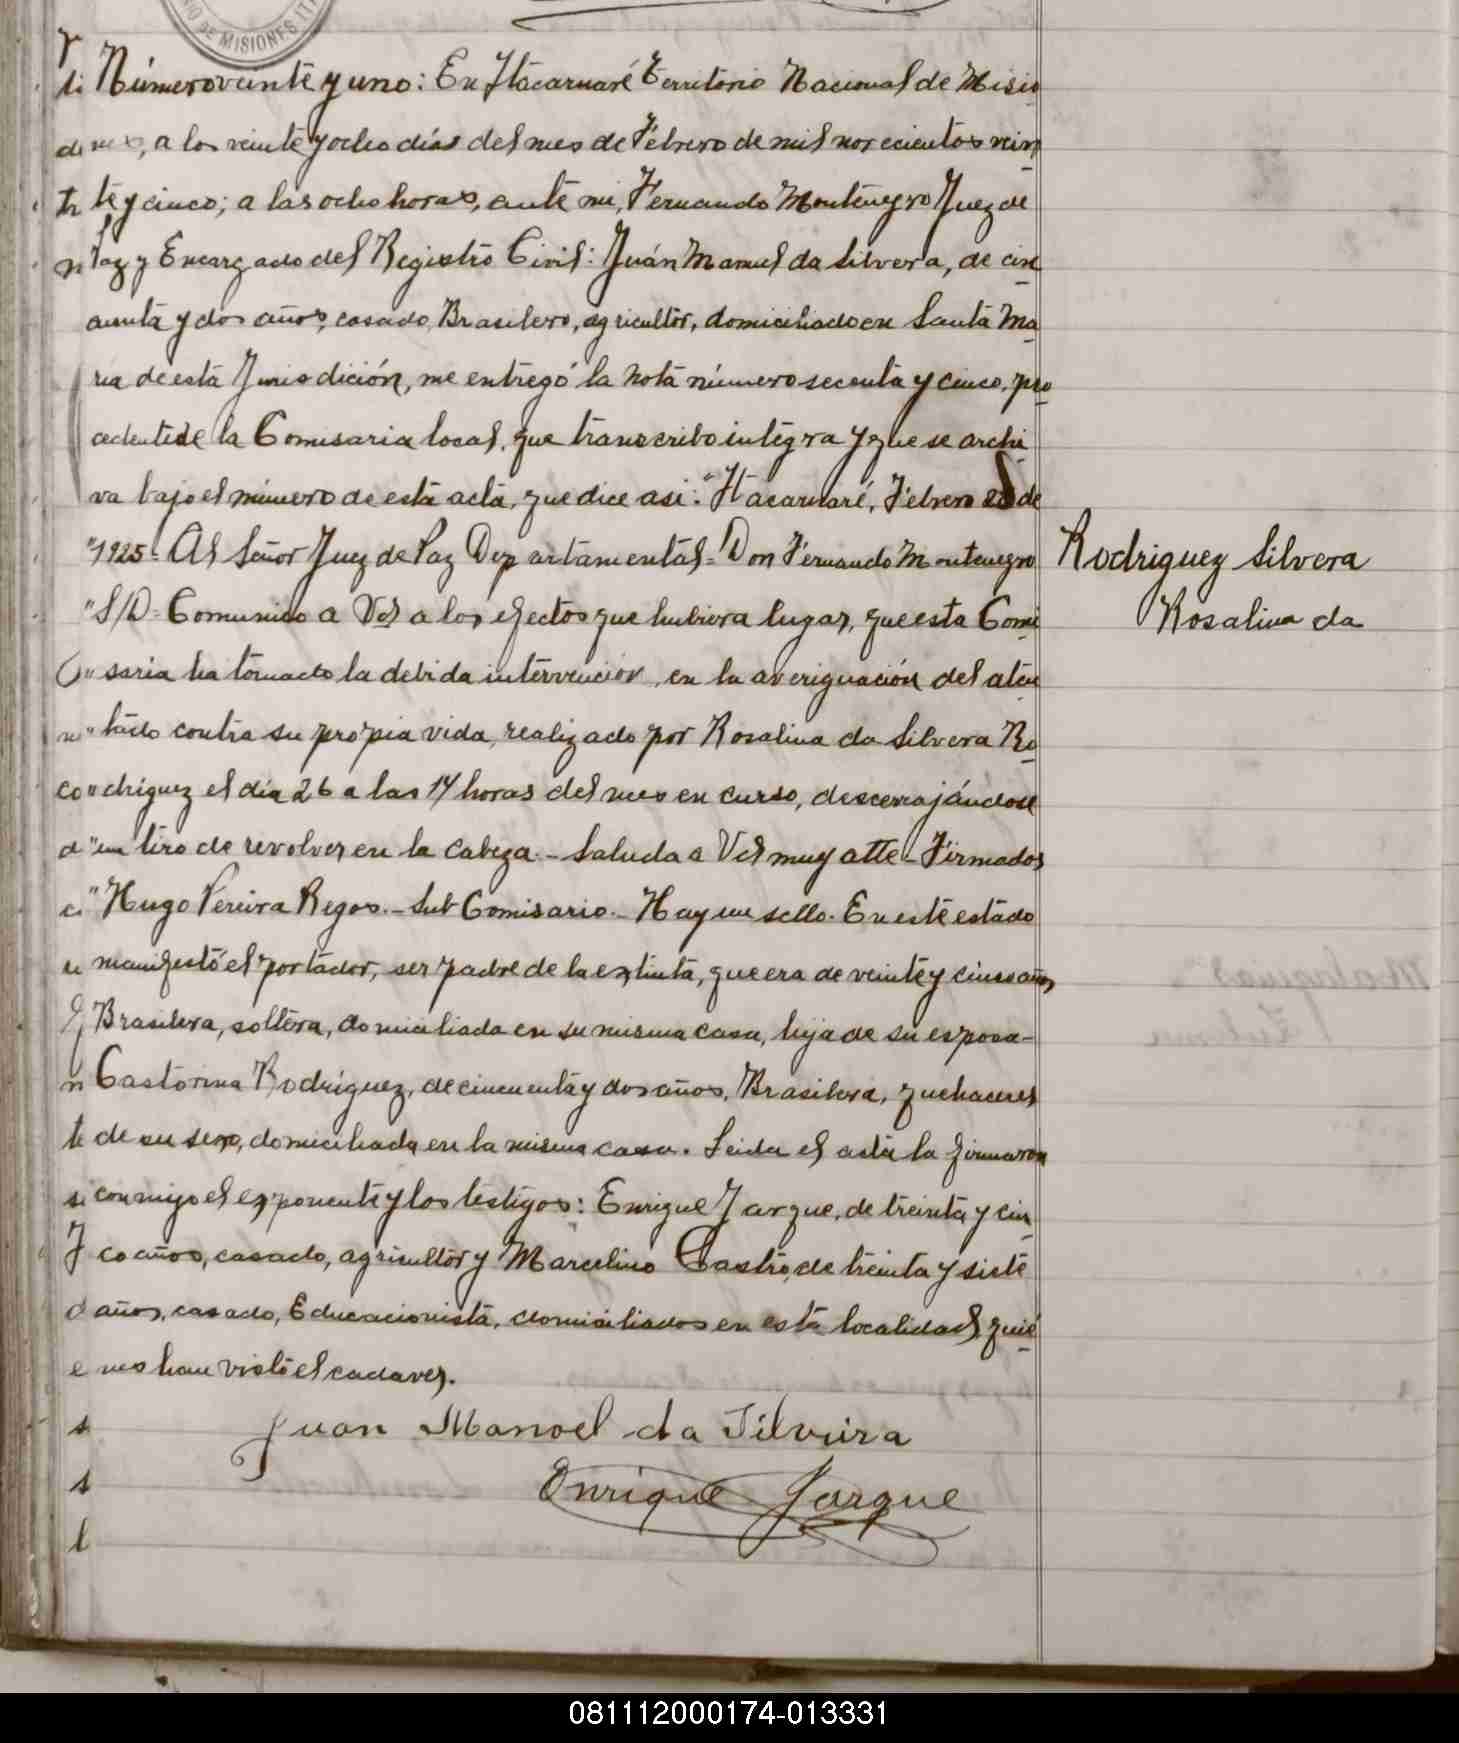 DE MISIONES
Número veinte y uno: En Itacaruaré Territorio Nacional de Misio
nes, a los veinte y ocho días del mes de Febrero de mil novecientos vein
te y cinco; a las ocho horas, ante mi, Fernando Montenegro Juez de
Paz y Encargado del Registro Civil: Juán Manuel da Silvera, de cin
cuenta y dos años, casado, Brasilero, agricultor, domiciliado en Santa Ma
ria de está Jurisdición, me entregó la nota número secenta y cinco, pro
cedente de la Comisaria local, que transcribo integra y que se archi
va bajo el número de está acta, que dice asi: "Itacaruaré, Febrero 28 de
"1925- Al Señor Juez de Paz Departamental= Don Fernando Montenegro
"S/D= Comunico a Vd a los efectos que hubiera lugar, que esta Comi
" saria ha tomado la debida intervención, en la averiguación del aten
" tado contra su propia vida, realizado por Rosalina da Silvera Ro
" driguez el día 26 a las 14 horas del mes en curso, descerrajándose
" un tiro de revolver en la cabeza.- Saluda a Vd muy atte- Firmados
" Hugo Pereira Regos.- Sub Comisario.- Hay un sello. En este estado
manifestó el portador, ser padre de la extinta, que era de veinte y cinco años
Brasilera, soltera, domiciliada en su misma casa, hija de su esposa-
Castorina Rodriguez, de cincuenta y dos años, Brasilera, quehaceres
de su sexo, domiciliada en la misma casa. Leida el acta la firmaron
conmigo el exponente y los testigos: Enrique Jarque, de treinta y cin
co años, casado, agricultor y Marcelino Castro, de treinta y siete
años, casado, Educacionista, domiciliados en está localidad, quié
nes han visto el cadaver.
Juan Manoel da Silveira
Enrique Jarque
Rodriguez Silvera
Rosalina da
081112000174-013331